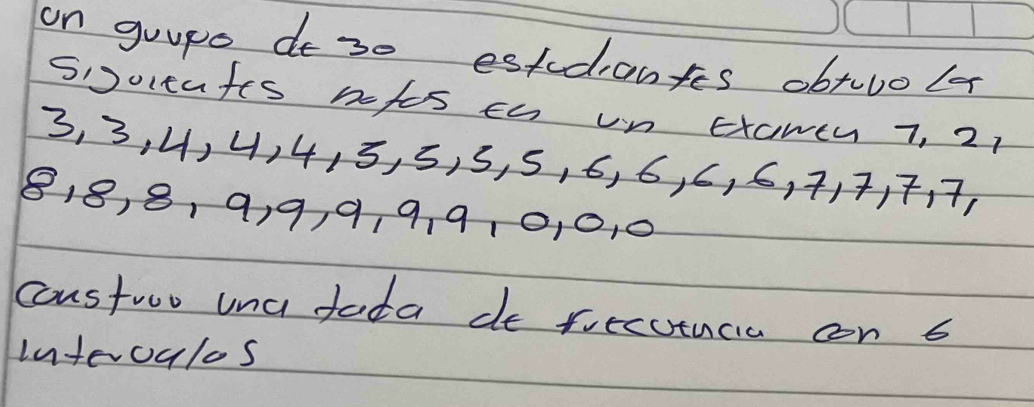 un grupo de 30 estudiantes obtuvo las
siguientes notas en un examen 1, 2,
3, 3, 4, 4, 4, 5, 5, 5, 5, 6, 6, 6, 6, 7, 7, 7, 7,
8, 8, 8, 9, 9, 9, 9, 9, 0, 0, 0
construo una tada de frecuencia con 6
intervalos